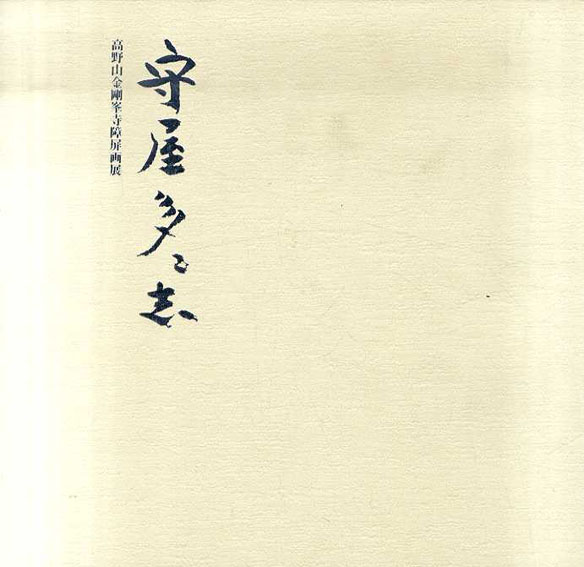 守屋多々志
高野山金剛峯寺障屏画展